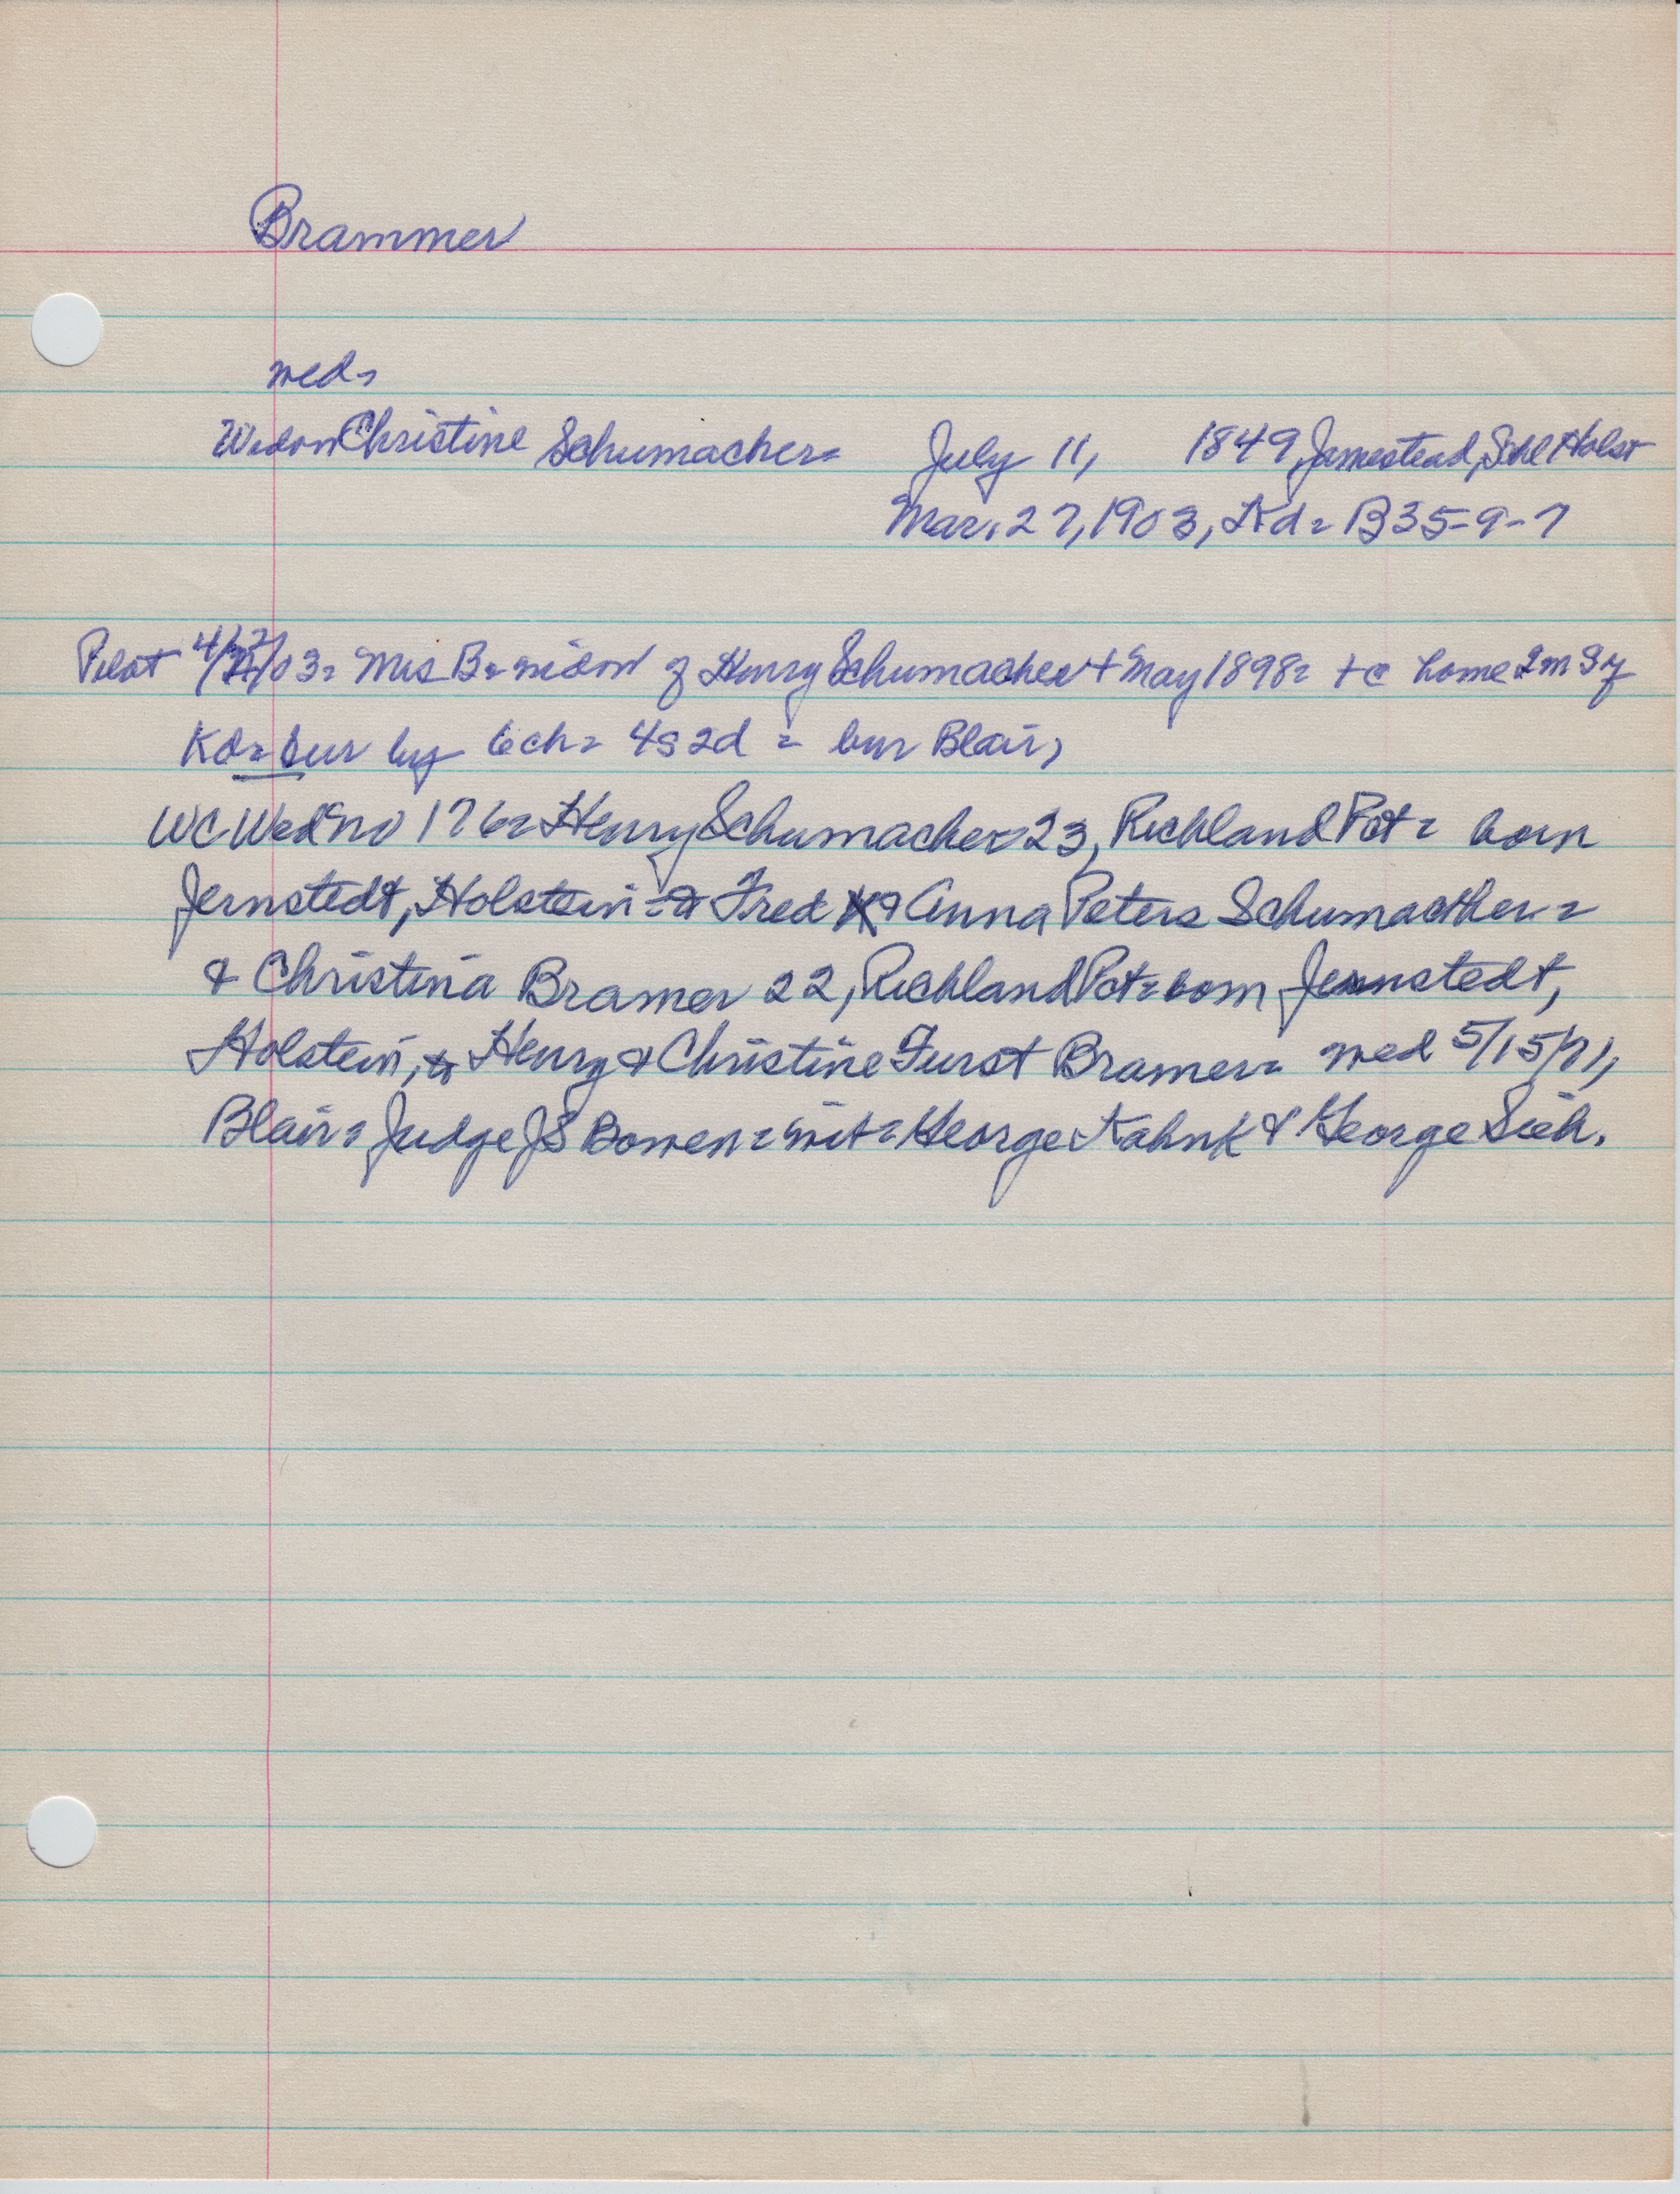 Brammer
wed=
Widow Christine Schumacher= July 11, 1849, Jamestead, Schl Holst
Mar. 27, 1903, Kd= B35-9-7
Pilot 4/ /03= Mrs B= widow of Henry Schumacher + May 1898= + @ home 2m S of
Kd= sur by 6ch= 4s 2d = bur Blair,
WC Wed no 176= Henry Schumacher 23, Richland Pct= born
Jernstedt, Holstein= to Fred & Anna Peters Schumacher=
& Christina Bramer 22, Richland Pct= born Jennstedt,
Holstein, to Henry & Christine Furst Bramer= wed 5/15/71,
Blair= Judge JS Bowen= wit= George Kahnk & George Sieh.